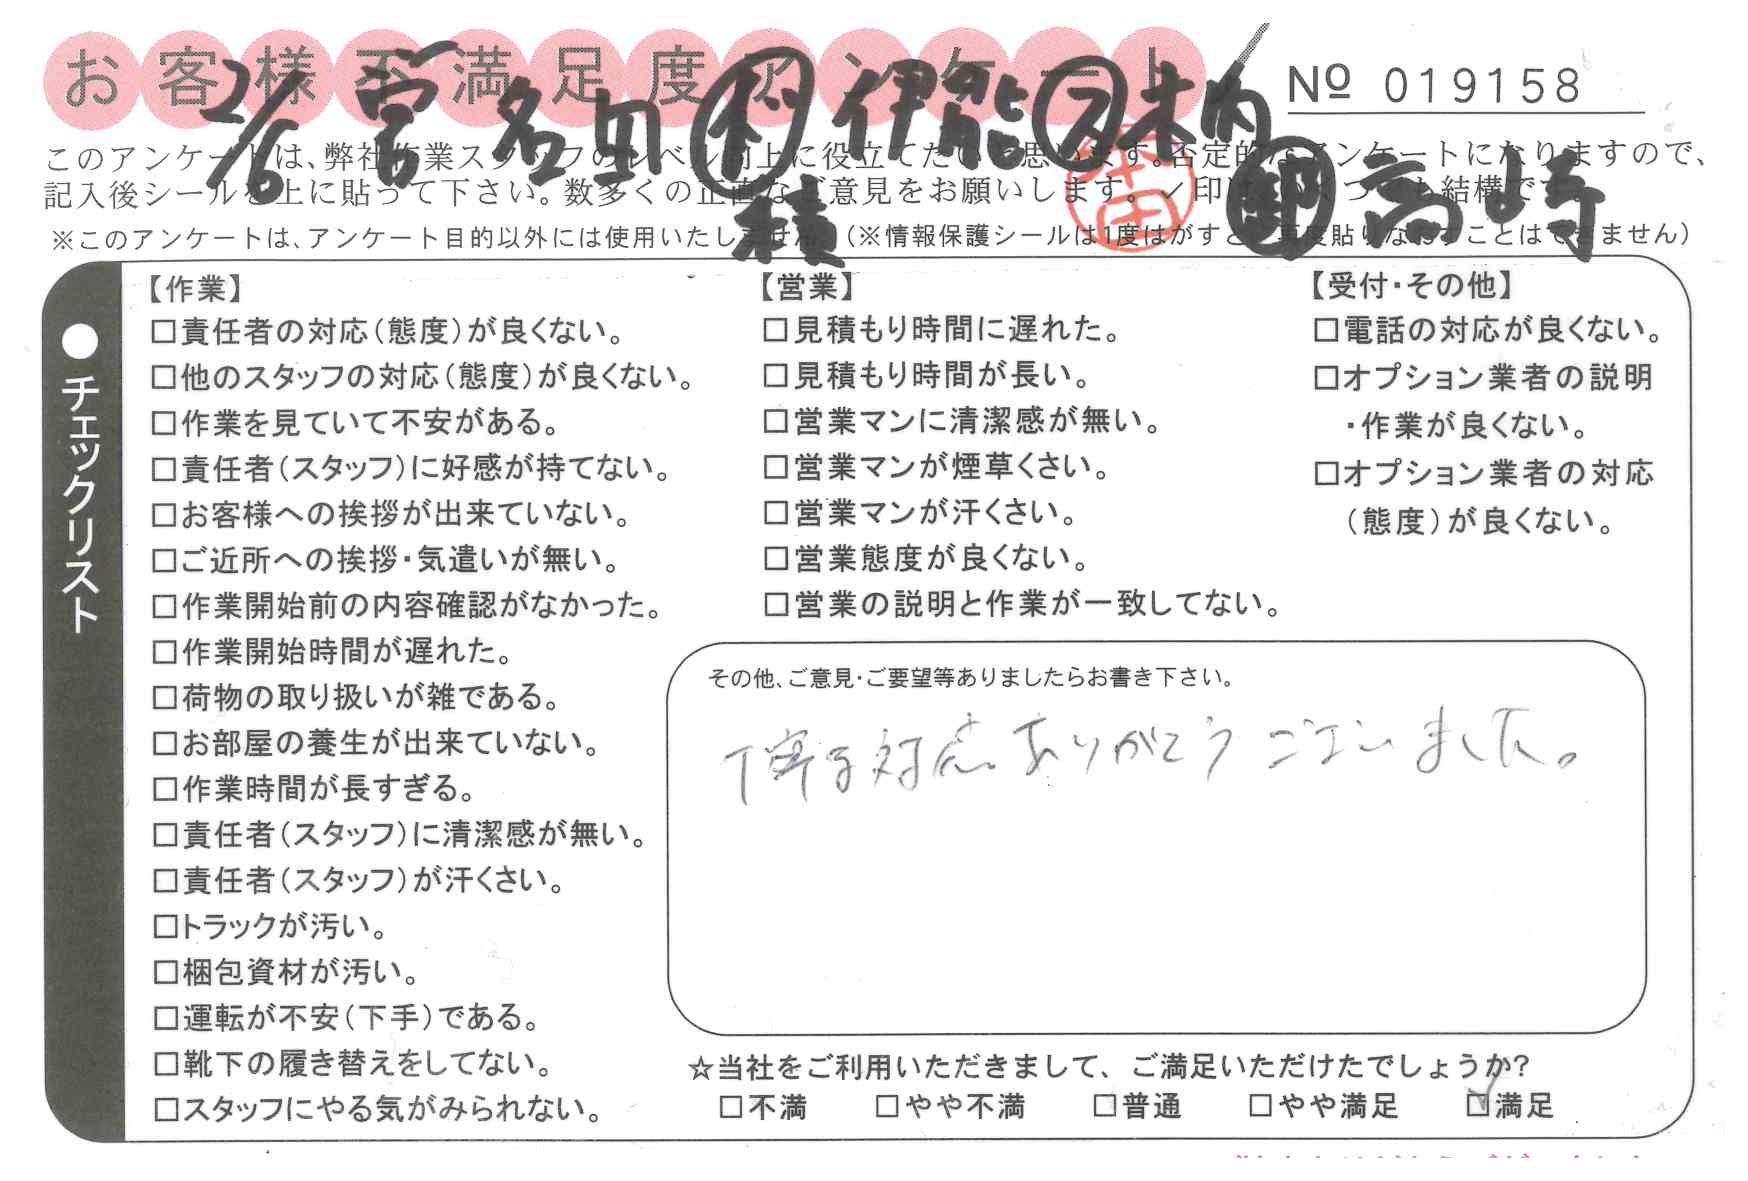 お客様不満足度アンケート
Nº 019158
2/6
伊能
高崎
積
このアンケートは、弊社作業スタッフのレベル向上に役立てたいと思います。否定的なアンケートになりますので、
記入後シールを上に貼って下さい。数多くの正直なご意見をお願いします。✓印は、いくつでも結構です。
※このアンケートは、アンケート目的以外には使用いたしません。(※情報保護シールは1度はがすと、再度貼りなおすことはできません)
●チェックリスト
【作業】
□責任者の対応(態度)が良くない。
□他のスタッフの対応(態度)が良くない。
□作業を見ていて不安がある。
□責任者(スタッフ)に好感が持てない。
□お客様への挨拶が出来ていない。
□ご近所への挨拶・気遣いが無い。
□作業開始前の内容確認がなかった。
□作業開始時間が遅れた。
□荷物の取り扱いが雑である。
□お部屋の養生が出来ていない。
□作業時間が長すぎる。
□責任者(スタッフ)に清潔感が無い。
□責任者(スタッフ)が汗くさい。
□トラックが汚い。
□梱包資材が汚い。
□運転が不安(下手)である。
□靴下の履き替えをしてない。
□スタッフにやる気がみられない。
【営業】
□見積もり時間に遅れた。
□見積もり時間が長い。
□営業マンに清潔感が無い。
□営業マンが煙草くさい。
□営業マンが汗くさい。
□営業態度が良くない。
□営業の説明と作業が一致してない。
【受付・その他】
□電話の対応が良くない。
□オプション業者の説明
・作業が良くない。
□オプション業者の対応
(態度)が良くない。
その他、ご意見・ご要望等ありましたらお書き下さい。
丁寧な対応ありがとうございました。
☆当社をご利用いただきまして、ご満足いただけたでしょうか?
□不満 □やや不満 □普通 □やや満足 ☑満足